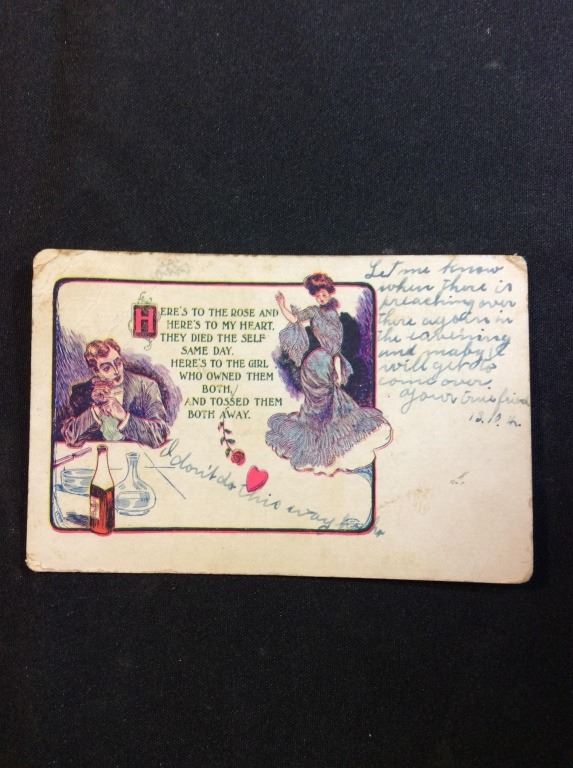 HERE'S TO THE ROSE AND
HERE'S TO MY HEART,
THEY DIED THE SELF
SAME DAY.
HERE'S TO THE GIRL
WHO OWNED THEM
BOTH,
AND TOSSED THEM
BOTH AWAY.
I don't do this way
Let me know
when there is
preaching over
there again in
the
and maby I
will get to
come over.
Your true